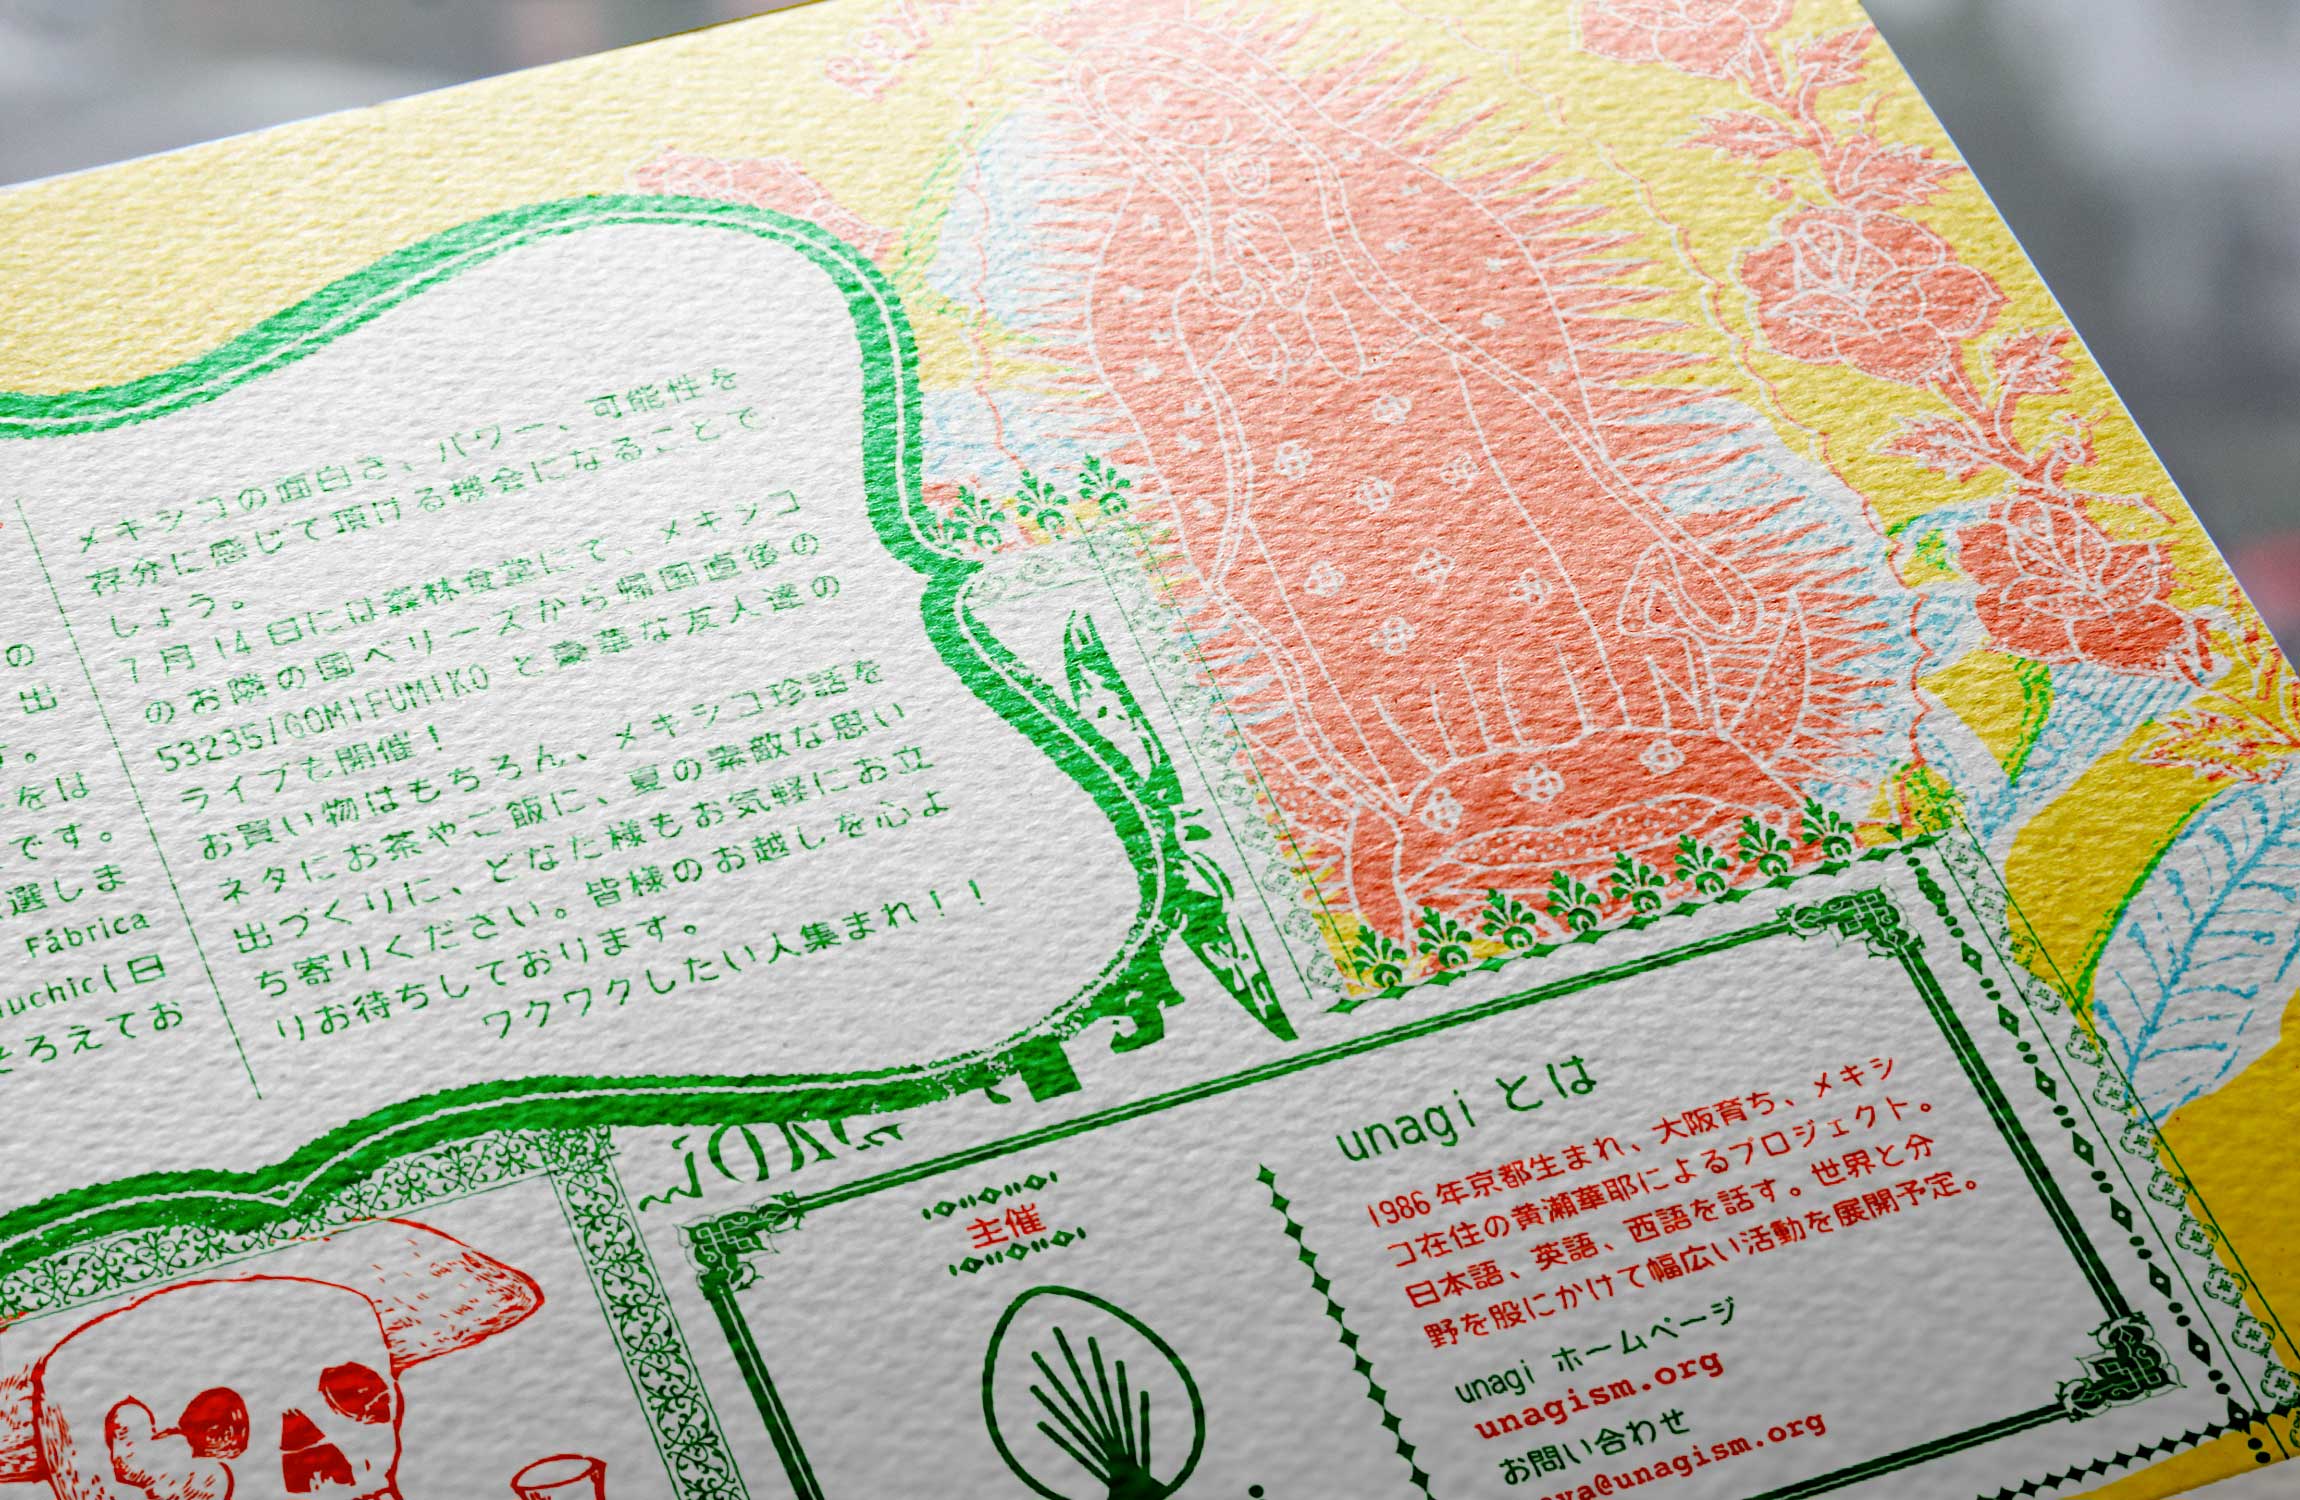 の
出
す。
をは
です。
選しま
Fábrica
uchic(日
そろえてお
メキシコの面白さ、パワー、可能性を
存分に感じて頂ける機会になることで
しょう。
7月14日には森林食堂にて、メキシコ
のお隣の国ベリーズから帰国直後の
53235/GOMIFUMIKO と豪華な友人達の
ライブも開催！
お買い物はもちろん、メキシコ珍話を
ネタにお茶やご飯に、夏の素敵な思い
出づくりに、どなた様もお気軽にお立
ち寄りください。皆様のお越しを心よ
りお待ちしております。
ワクワクしたい人集まれ！！
主催
unagi とは
1986年京都生まれ、大阪育ち、メキシ
コ在住の黄瀬華耶によるプロジェクト。
日本語、英語、西語を話す。世界と分
野を股にかけて幅広い活動を展開予定。
unagi ホームページ
unagism.org
お問い合わせ
aya@unagism.org